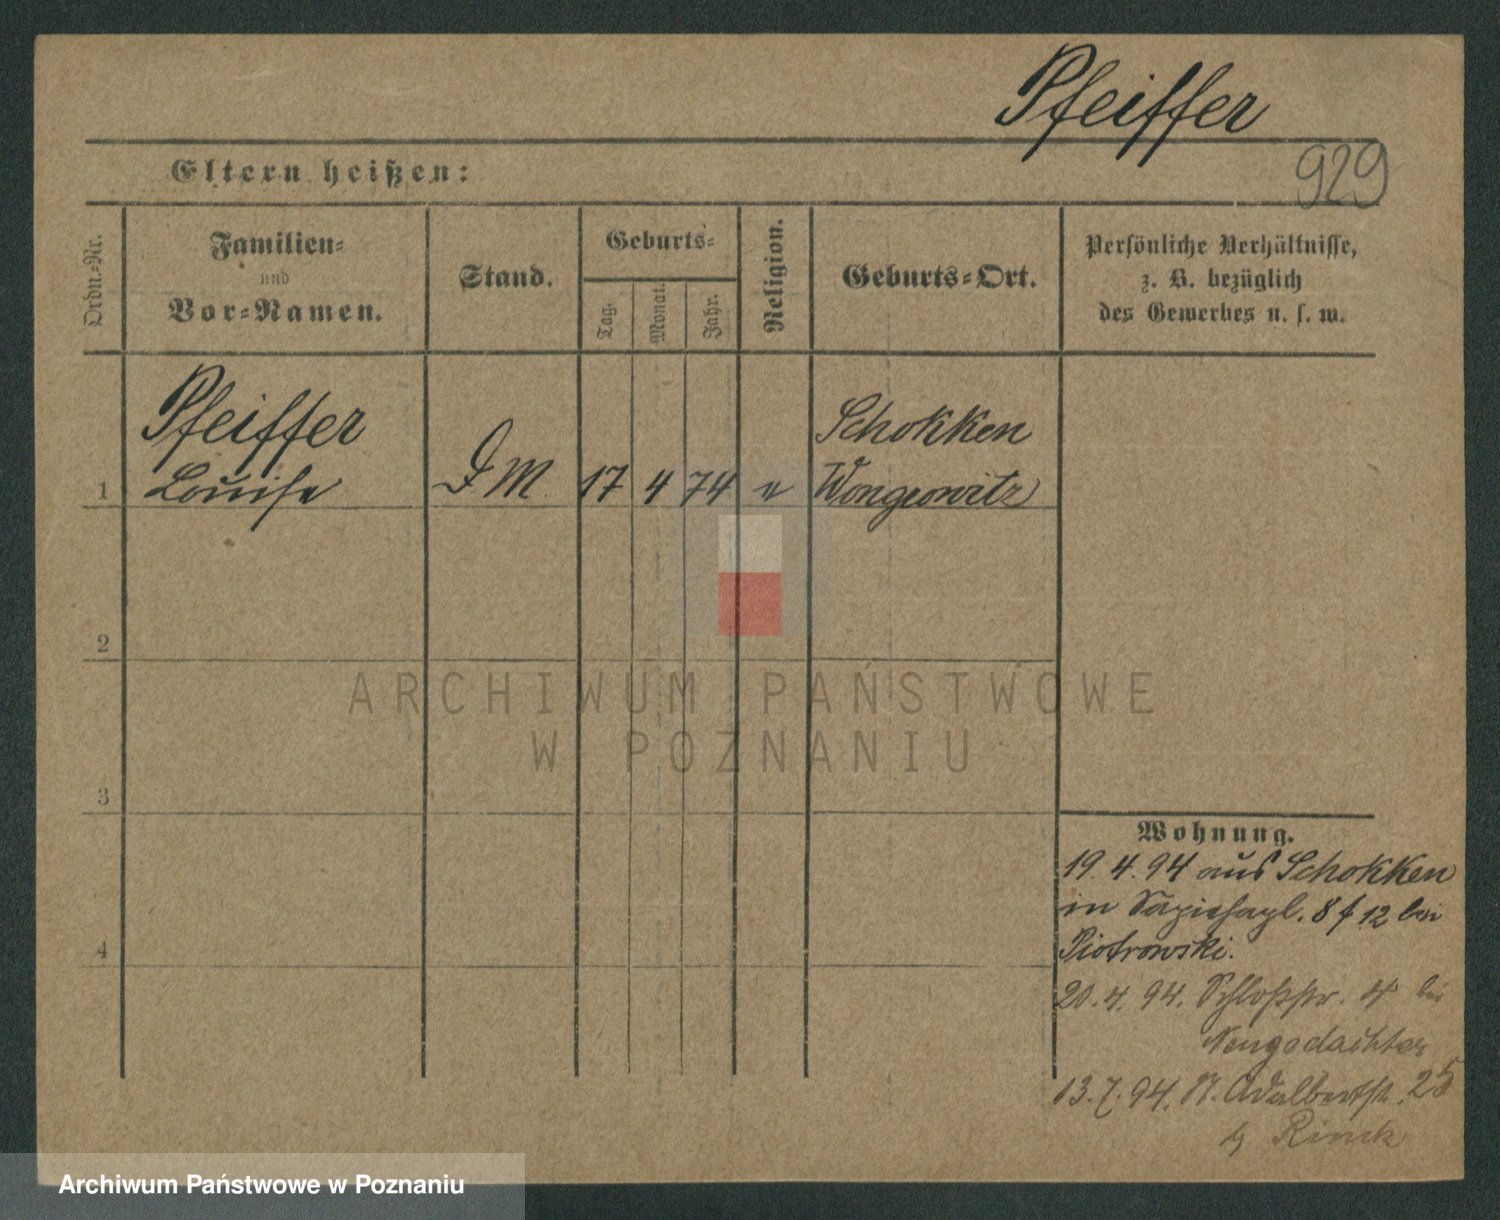 Pfeiffer
929
Eltern heißen:
Ordn.=Nr.
Familien=
und
Vor=Namen.
Stand.
Geburts=
Tag.
Monat.
Jahr.
Religion.
Geburts=Ort.
Persönliche Verhältnisse,
z. B. bezüglich
des Gewerbes u. s. w.
Pfeiffer
Louise
1
D. M.
17
4
74
e
Schokken
Wongrowitz
2
3
4
Wohnung.
19.4.94 aus Schokken
in Sapiehapl. 8 f 12 bei
Piotrowski.
20.4.94. Schloßstr. 4 bei
Neugedachter
13.7.94. St. Adalbertstr. 25
Rinck
ARCHIWUM PAŃSTWOWE
W POZNANIU
Archiwum Państwowe w Poznaniu